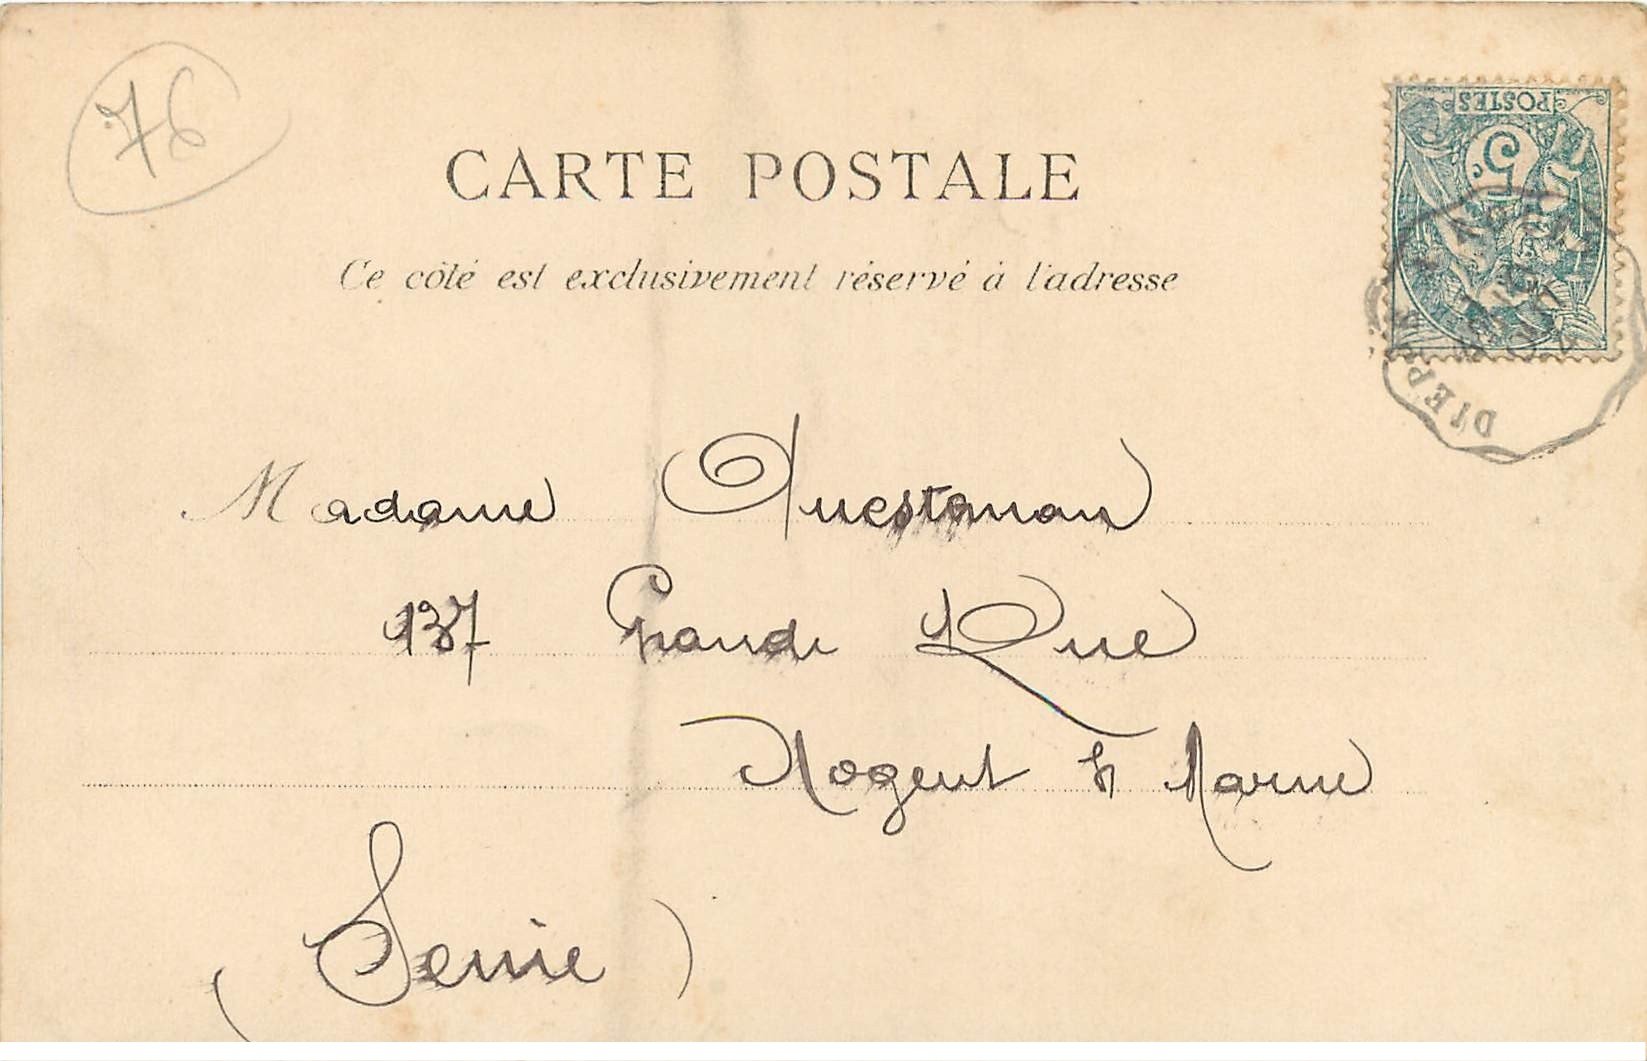 76
CARTE POSTALE
POSTES
5
Ce côté est exclusivement réservé à l'adresse
DIEPP
Madame Questanan
137 Grande Rue
Nogent s/ Marne
(Seine)